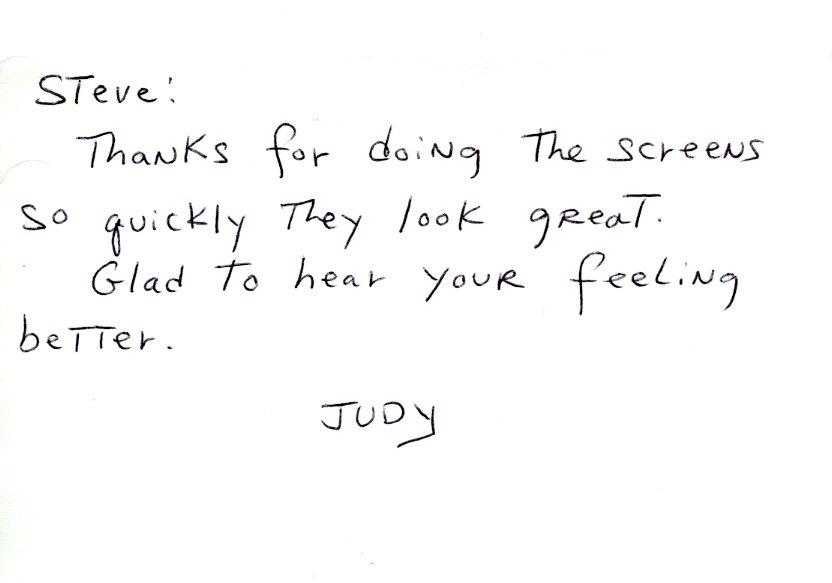 Steve:
Thanks for doing the screens
so quickly They look great.
Glad to hear your feeling
better.
Judy